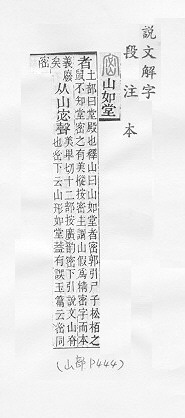 說文解字
段注本
山如堂
者土部曰堂殿也釋山曰山如堂者密郭引尸子松柏之
鼠不知堂密之有美樅按密主謂山假爲精密字而本
義廢
矣
从山宓聲
美畢切十二部按廣韵密下引說文山脊
也密下云山形如堂蓋有誤玉篇云
同
密
(山部 P444)